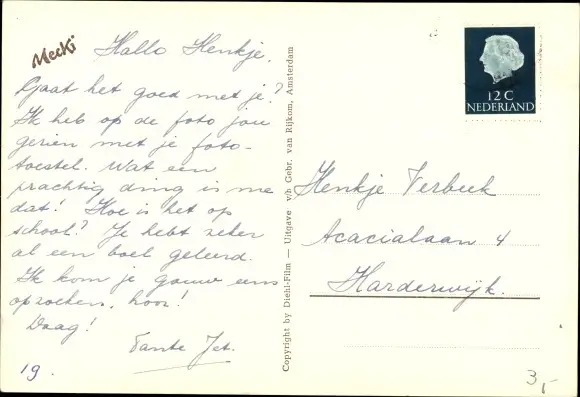 Mecki
Hallo Henkje,
Gaat het goed met je?
Ik heb op de foto jou
gezien met je foto-
toestel. Wat een
prachtig ding is me
dat! Hoe is het op
school? Je hebt zeker
al een boel geleerd.
Ik kom je gauw eens
opzoeken, hoor!
Daag!
Tante Jet.
19.
Copyright by Diehl-Film — Uitgave v/h Gebr. van Rijkom, Amsterdam
12 C
NEDERLAND
Henkje Verbeek
Acacialaan 4
Harderwijk.
3,-